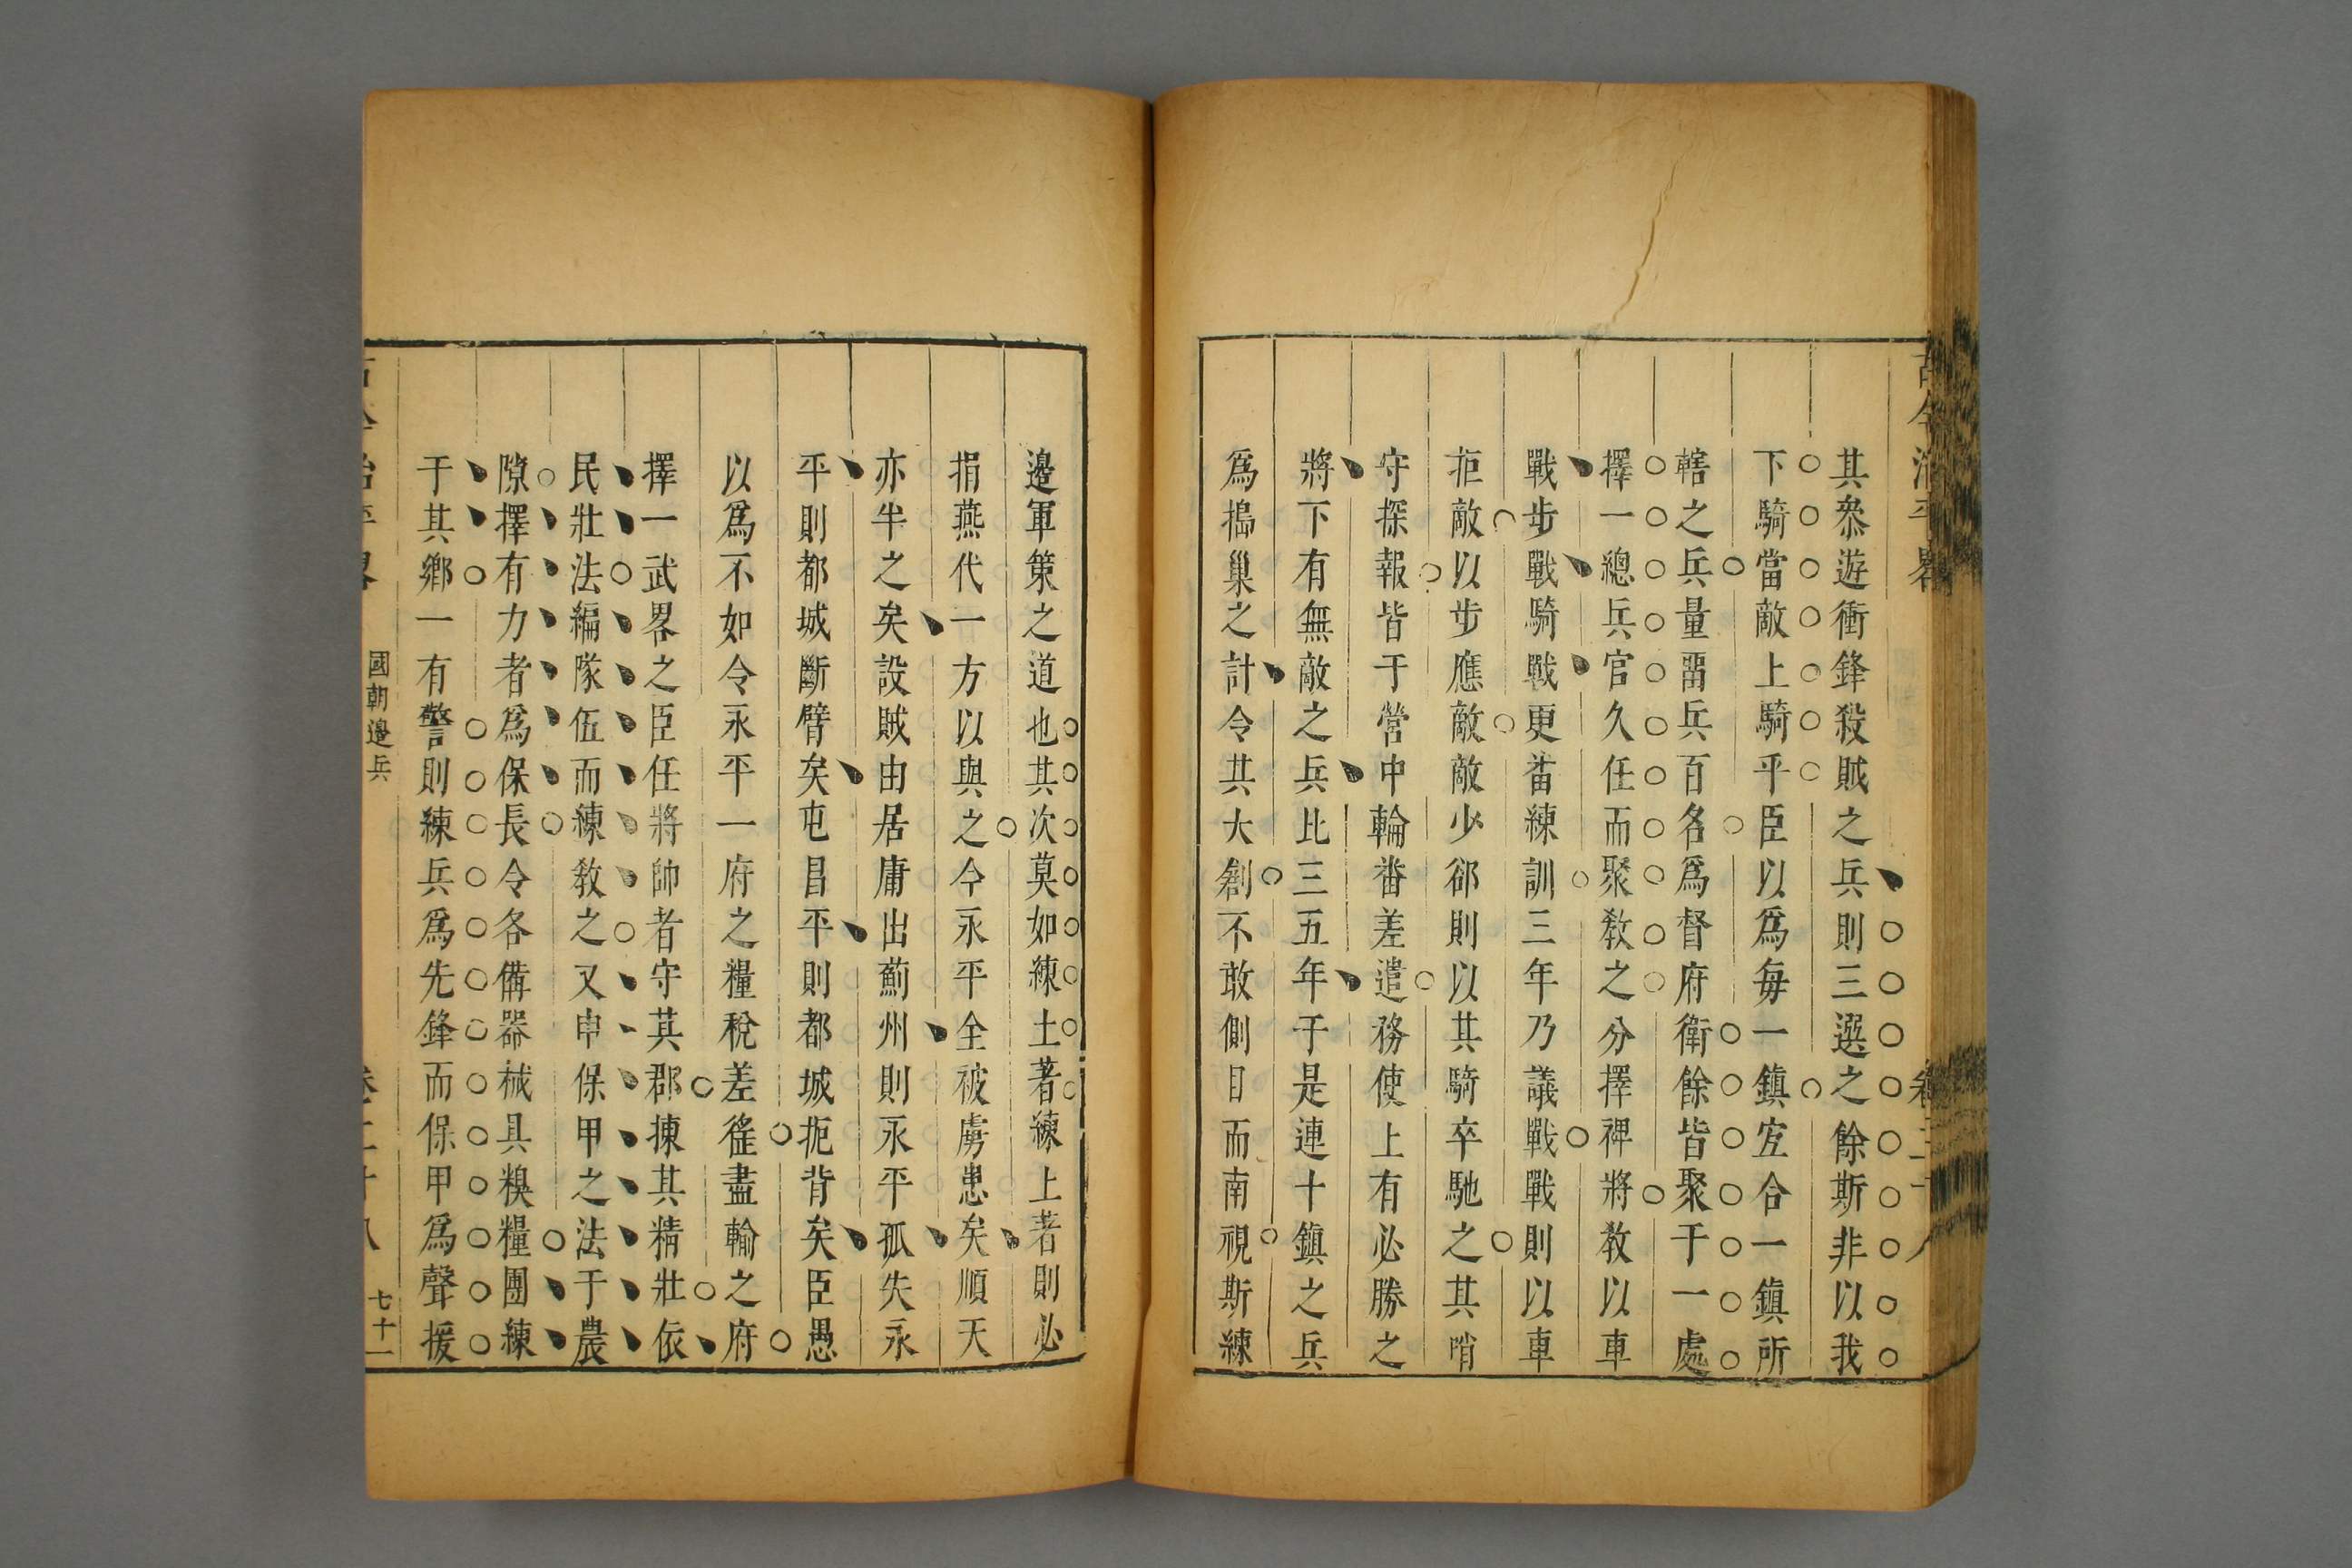 古今治平畧
卷二十八
其叅遊衝鋒殺賊之兵則三選之餘斯非以我
下騎當敵上騎乎臣以爲每一鎮宜合一鎮所
轄之兵量畱兵百名爲督府衛餘皆聚于一處
擇一總兵官久任而聚敎之分擇裨將敎以車
戰步戰騎戰更畨練訓三年乃議戰戰則以車
拒敵以步應敵敵少郤則以其騎卒馳之其哨
守探報皆于營中輪畨差遣務使上有必勝之
將下有無敵之兵比三五年于是連十鎮之兵
爲搗巢之計令其大創不敢側目而南視斯練
邊軍策之道也其次莫如練土著練土著則必
捐燕代一方以與之今永平全被虜患矣順天
亦半之矣設賊由居庸出薊州則永平孤失永
平則都城斷臂矣屯昌平則都城扼背矣臣愚
以爲不如令永平一府之糧稅差徭盡輸之府
擇一武畧之臣任將帥者守其郡揀其精壯依
民壯法編隊伍而練敎之又申保甲之法于農
隙擇有力者爲保長令各備器械具糗糧團練
于其鄉一有警則練兵爲先鋒而保甲爲聲援
古今治平畧
國朝邊兵
卷二十八
七十一